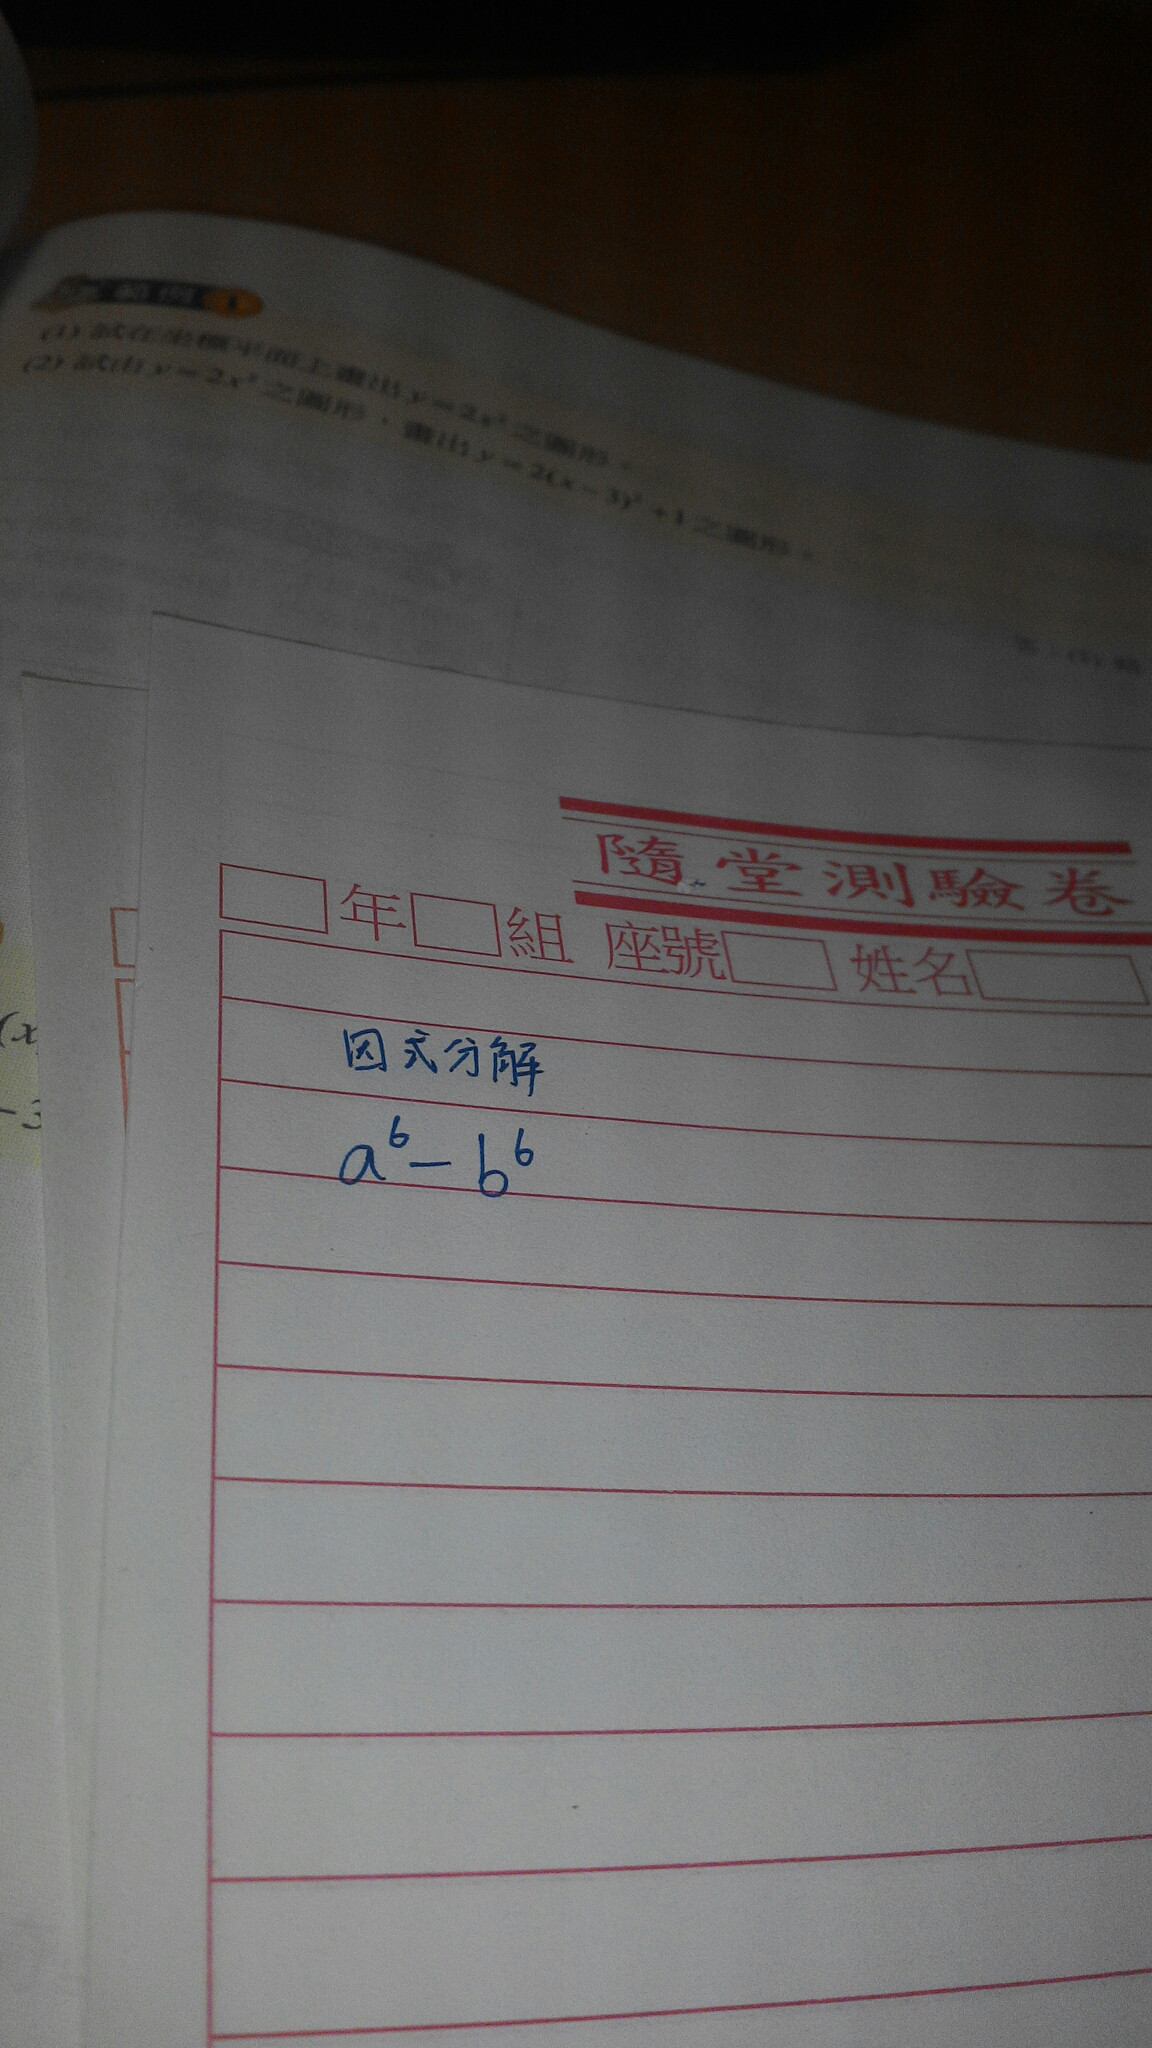 範例 1
(1) 試在坐標平面上畫出 y = 2x² 之圖形。
(2) 試由 y = 2x² 之圖形，畫出 y = 2(x − 3)² + 1 之圖形。
隨堂測驗卷
年 組 座號 姓名
(x
−3
因式分解
a⁶ − b⁶